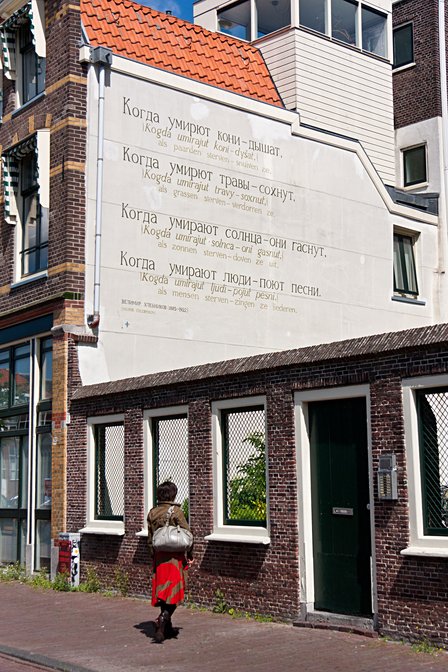 Когда умирют кони-дышат,
[Kogda umirajut Koni-dyšat,]
als paarden sterven-snuiven ze.
Когда умирают травы-сохнут,
[Kogda umirajut travy-soxnut,]
als grassen sterven-verdorren ze.
Когда умирают солнца-они гаснут,
[Kogda umirajut solnca-oni gasnut,]
als zonnen sterven-doven ze uit.
Когда умирают люди-поют песни.
[Kogda umirajut ljudi-pojut pesni.]
als mensen sterven-zingen ze liederen.
ВЕЛИМИР ХЛЕБНИКОВ (1885-1922)